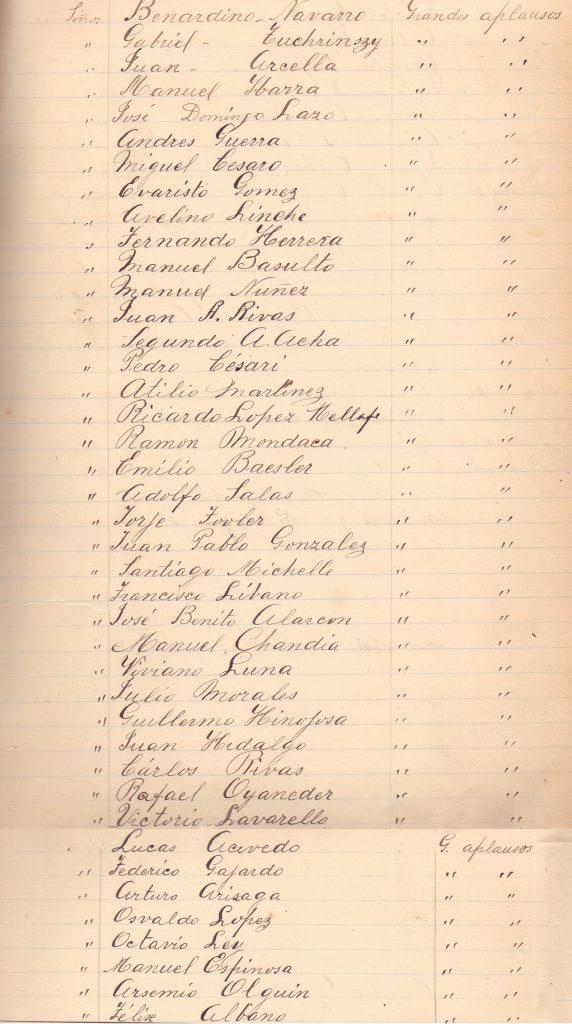 Señor Benardino Navarro Grandes aplausos
" Gabriel - Tuchrinszy " "
" Juan - Arcella " "
" Manuel Ybarra " "
" José Domingo Lazo " "
" Andres Guerra " "
" Miguel Cesaro " "
" Evaristo Gomez " "
" Avelino Linche " "
" Fernando Herrera " "
" Manuel Basulto " "
" Manuel Nuñez " "
" Juan A. Rivas " "
" Segundo A. Acha " "
" Pedro Césari " "
" Atilio Martinez " "
" Ricardo Lopez Mellafe " "
" Ramon Mondaca " "
" Emilio Baesler " "
" Adolfo Salas " "
" Jorje Fovler " "
" Juan Pablo Gonzalez " "
" Santiago Michelle " "
" Francisco Líbano " "
" José Benito Alarcon " "
" Manuel Chandia " "
" Viviano Luna " "
" Julio Morales " "
" Guillermo Hinojosa " "
" Juan Hidalgo " "
" Cárlos Rivas " "
" Rafael Oyaneder " "
" Victorio Lavarello " "
" Lucas Acevedo G. aplausos
" Federico Gajardo " "
" Arturo Arisaga " "
" Osvaldo Lopez " "
" Octavio Ley " "
" Manuel Espinosa " "
" Arsemio Olguin " "
" Félix Albano " "